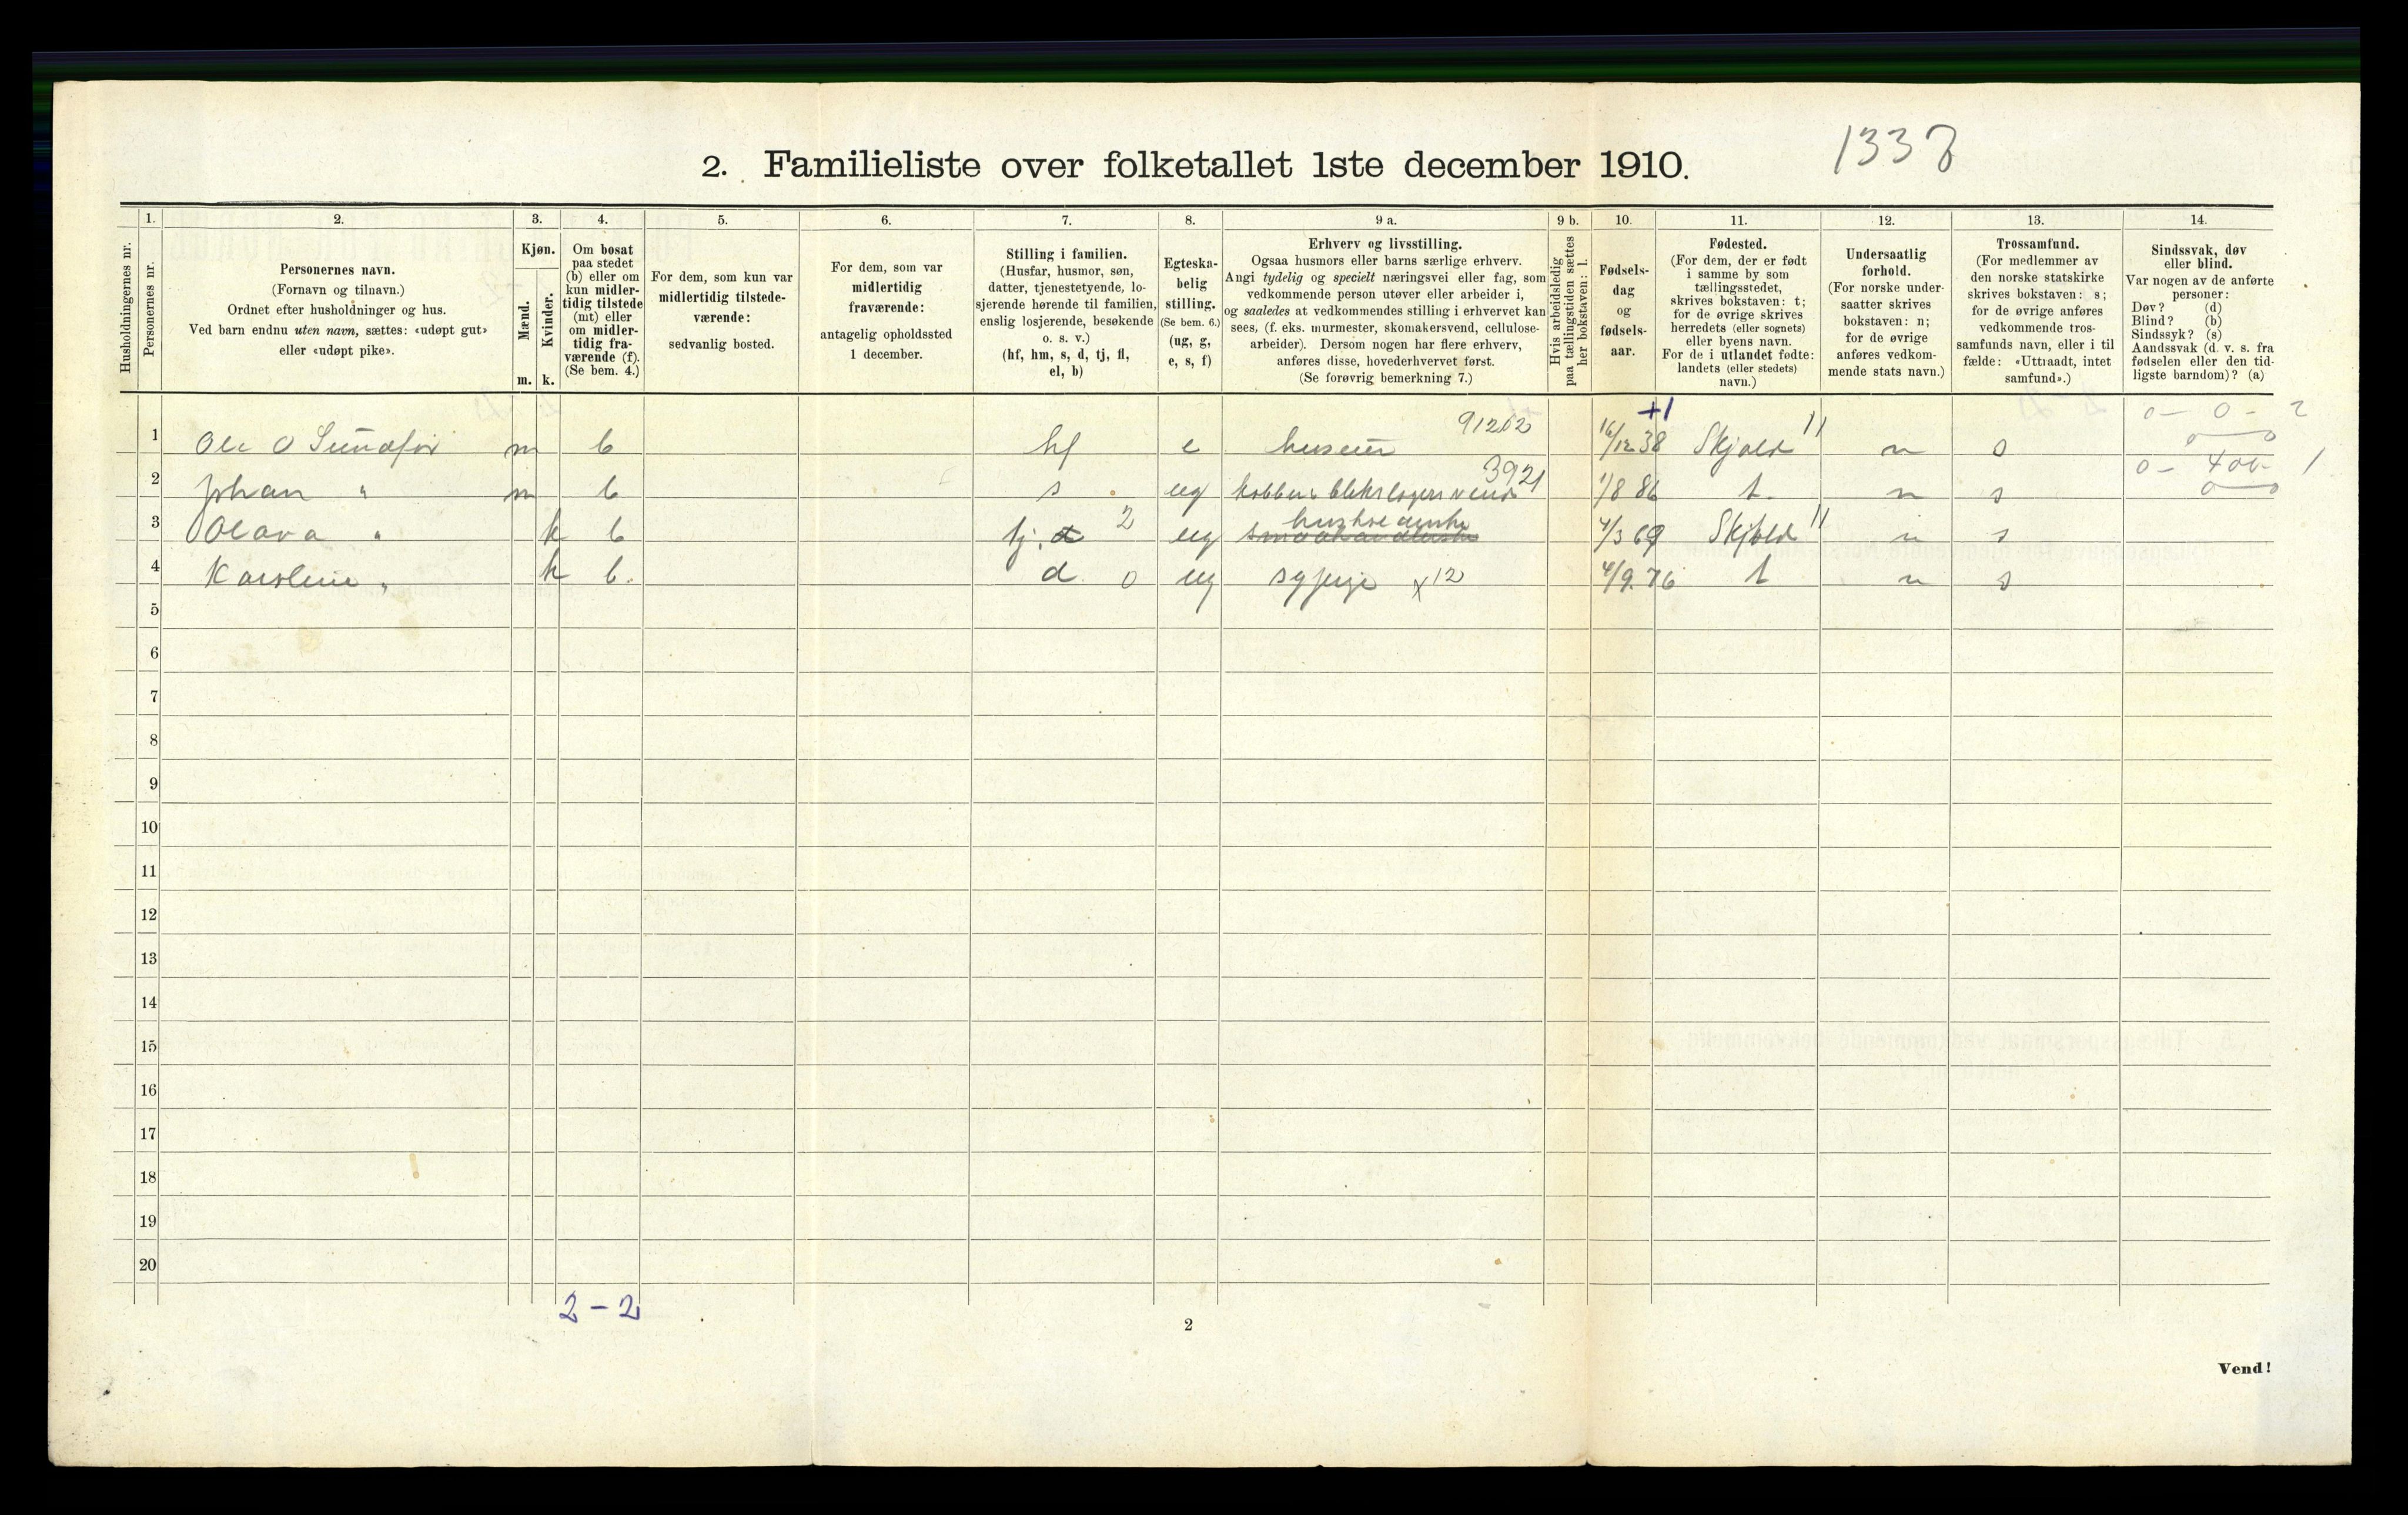 1338
2. Familieliste over folketallet 1ste december 1910.
Husholdningernes nr.
1.
Personernes nr.
2.
Personernes navn.
(Fornavn og tilnavn.)
Ordnet efter husholdninger og hus.
Ved barn endnu uten navn, sættes: «udøpt gut»
eller «udøpt pike».
3.
Kjøn.
Mænd.
Kvinder.
m. k.
4.
Om bosat
paa stedet
(b) eller om
kun midler-
tidig tilstede
(mt) eller
om midler-
tidig fra-
værende (f).
(Se bem. 4.)
5.
For dem, som kun var
midlertidig tilstede-
værende:
sedvanlig bosted.
6.
For dem, som var
midlertidig
fraværende:
antagelig opholdssted
1 december.
7.
Stilling i familien.
(Husfar, husmor, søn,
datter, tjenestetyende, lo-
sjerende hørende til familien,
enslig losjerende, besøkende
o. s. v.)
(hf, hm, s, d, tj, fl,
el, b)
8.
Egteska-
belig
stilling.
(Se bem. 6.)
(ug, g,
e, s, f)
9 a.
Erhverv og livsstilling.
Ogsaa husmors eller barns særlige erhverv.
Angi tydelig og specielt næringsvei eller fag, som
vedkommende person utøver eller arbeider i,
og saaledes at vedkommendes stilling i erhvervet kan
sees, (f. eks. murmester, skomakersvend, cellulose-
arbeider). Dersom nogen har flere erhverv,
anføres disse, hovederhvervet først.
(Se forøvrig bemerkning 7.)
9 b.
Hvis arbeidsledig
paa tællingstiden sættes
her bokstaven: l.
10.
Fødsels-
dag
og
fødsels-
aar.
11.
Fødested.
(For dem, der er født
i samme by som
tællingsstedet,
skrives bokstaven: t;
for de øvrige skrives
herredets (eller sognets)
eller byens navn.
For de i utlandet fødte:
landets (eller stedets)
navn.)
12.
Undersaatlig
forhold.
(For norske under-
saatter skrives
bokstaven: n;
for de øvrige
anføres vedkom-
mende stats navn.)
13.
Trossamfund.
(For medlemmer av
den norske statskirke
skrives bokstaven: s;
for de øvrige anføres
vedkommende tros-
samfunds navn, eller i til
fælde: «Uttraadt, intet
samfund».)
14.
Sindssvak, døv
eller blind.
Var nogen av de anførte
personer:
Døv? (d)
Blind? (b)
Sindssyk? (s)
Aandssvak (d. v. s. fra
fødselen eller den tid-
ligste barndom)? (a)
91202 +1 0 - 0 - 2
1 Ole O Sundfør m b hf e huseier 16/12 38 Skjold 11 n s
3921 0 - 400 - 1
2 Johan " m b s ug kobber & blikslagersvend 1/8 86 t. n s
3 Olava " k b tj. d 2 ug 4/3 69 Skjold 11 n s
4 Karoline " k b. d 0 ug syperje x12 4/9. 76 t n s
5
6
7
8
9
10
11
12
13
14
15
16
17
18
19
20
2 - 2
2
Vend!